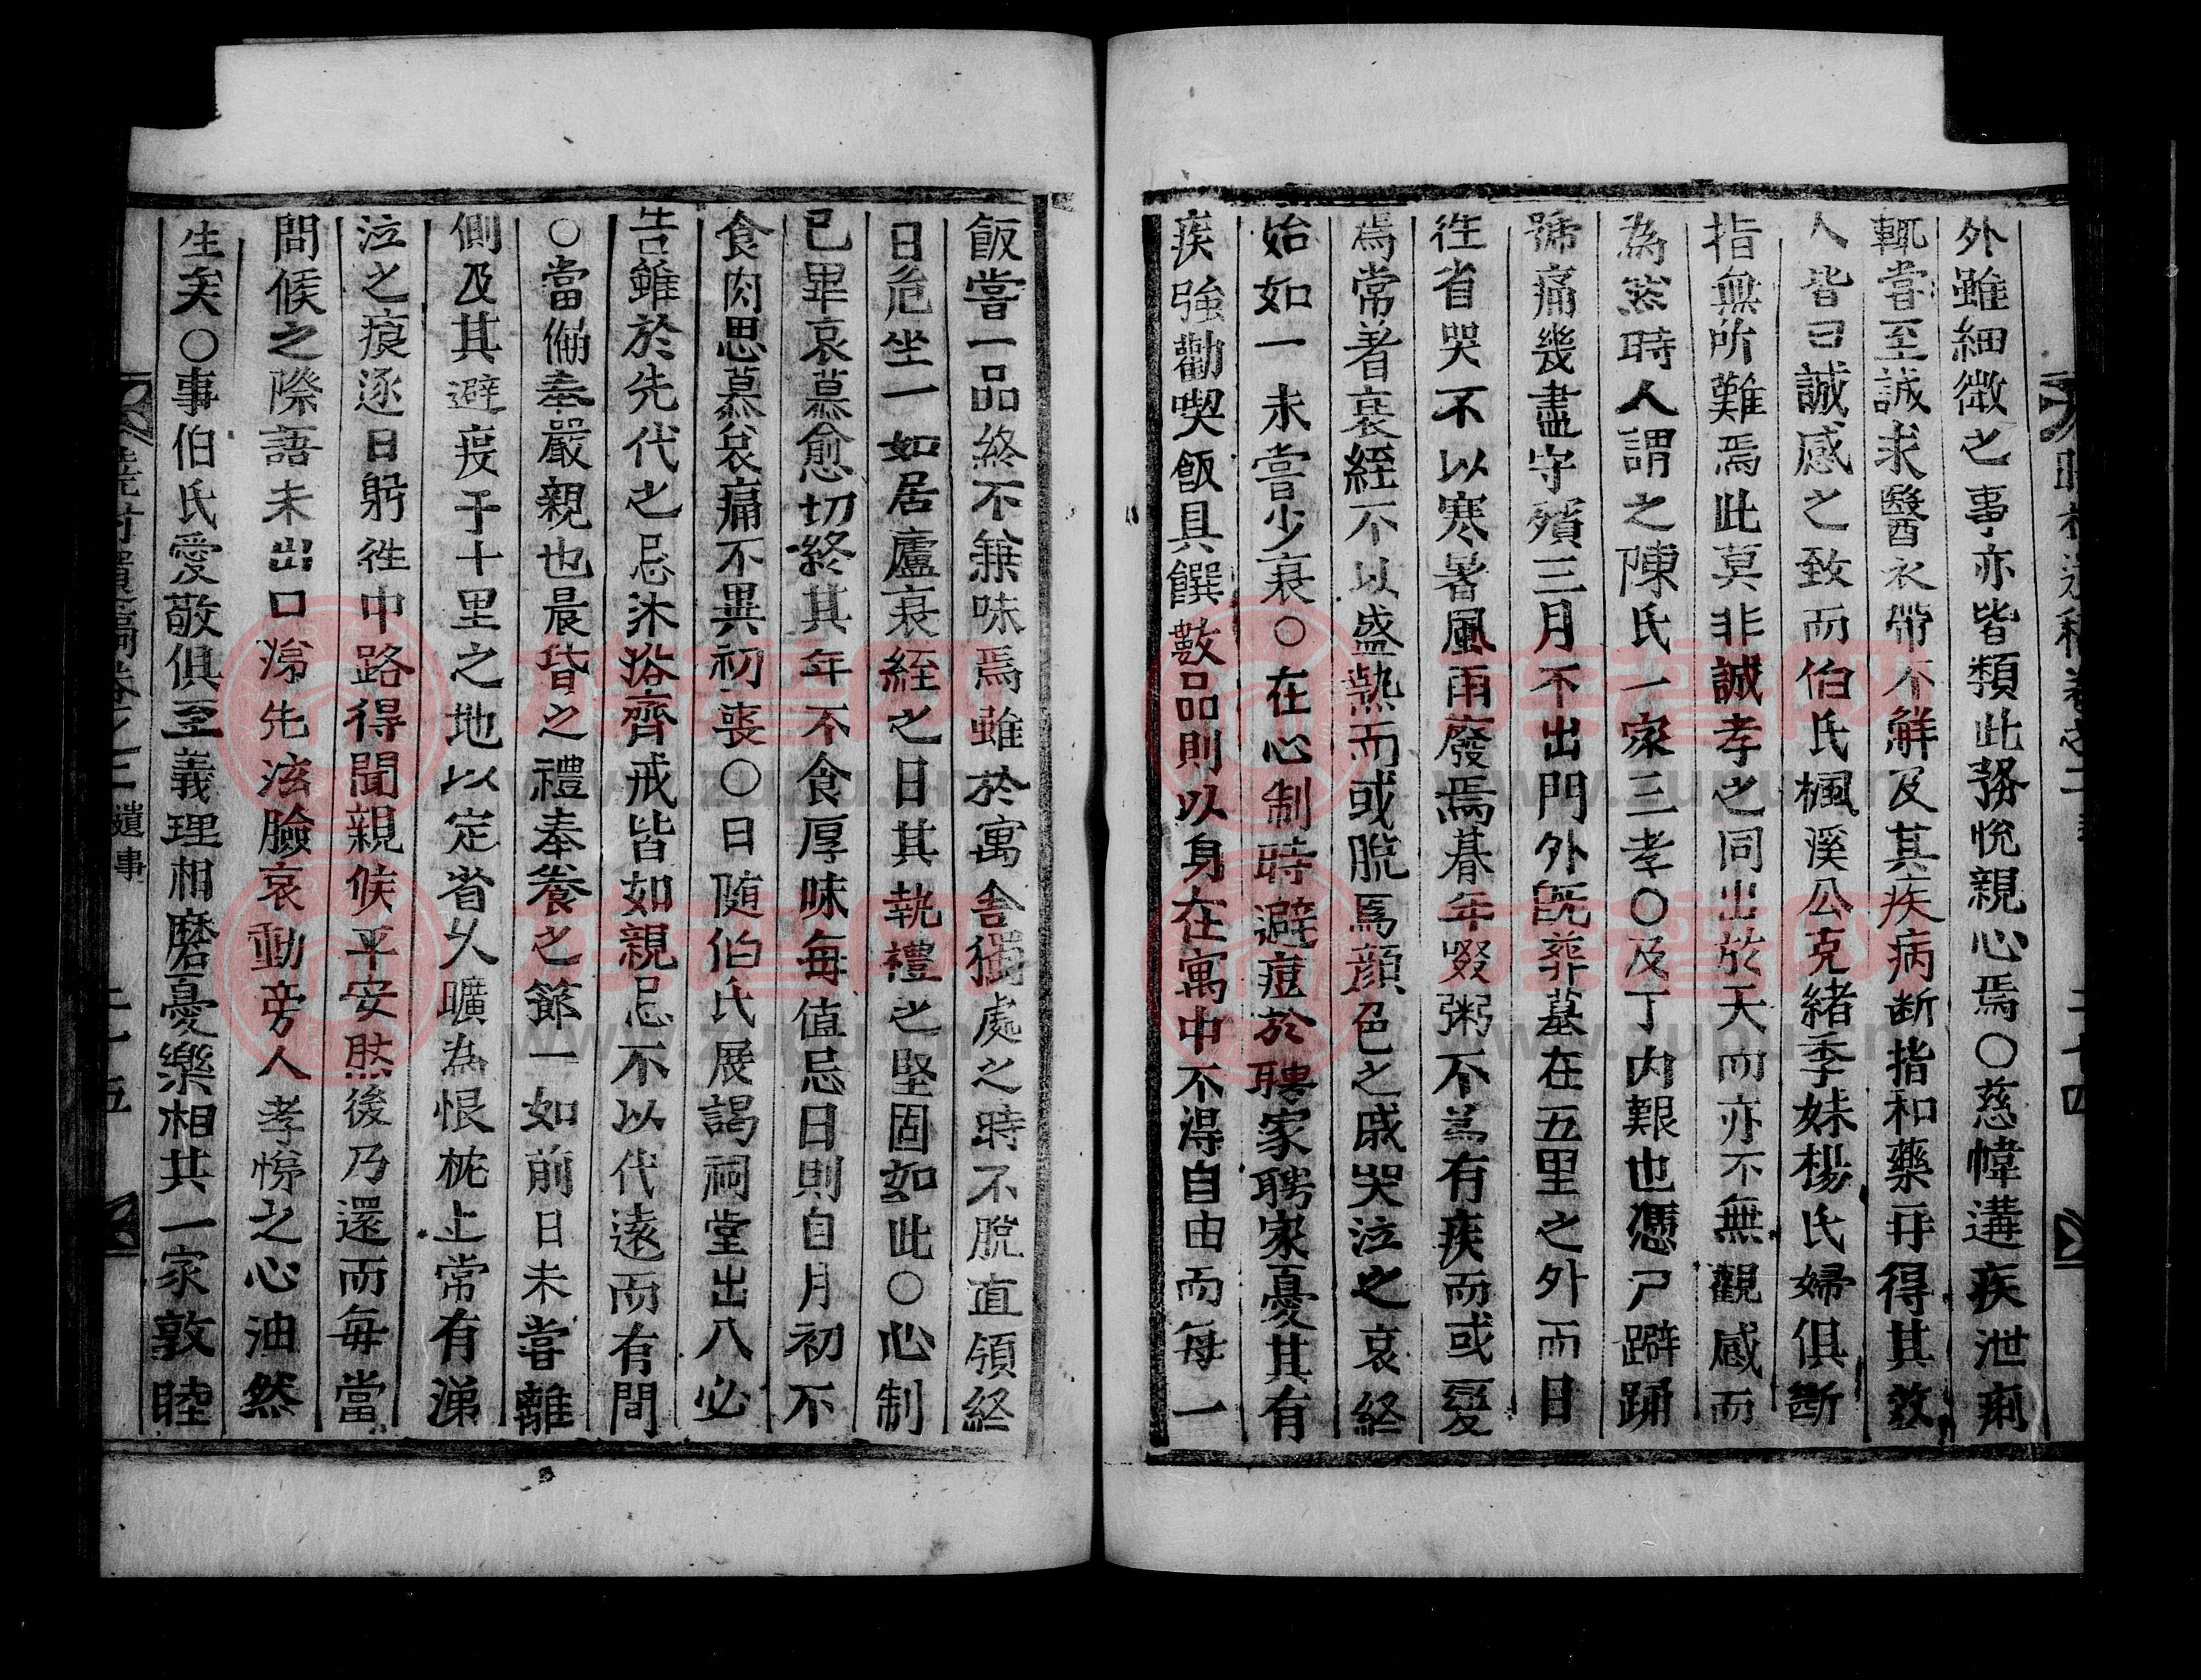 外雖細微之事亦皆類此務悅親心焉○慈幃遘疾泄痢
輒嘗至誠求醫衣帶不解及其疾病断指和藥再得其效
人皆曰誠感之致而伯氏楓溪公克緒季妹楊氏婦俱斷
指無所難焉此莫非誠孝之同出於天而亦不無觀感而
為然時人謂之陳氏一家三孝○及丁内艱也憑尸躃踊
號痛幾盡守殯三月不出門外既葬墓在五里之外而日
往省哭不以寒暑風雨廢焉朞年啜粥不為有疾而或憂
焉常着衰絰不以盛熱而或脫焉顔色之戚哭泣之哀終
始如一未嘗少衰○在心制時避痘於聘家聘家憂其有
疾強勸喫飯具饌數品則以身在寓中不得自由而每一
飯嘗一品終不兼味焉雖於寓舍獨處之時不脫直領終
日危坐一如居廬衰絰之日其執禮之堅固如此○心制
已畢哀慕愈切終其年不食厚味每值忌日則自月初不
食肉思慕哀痛不異初喪○日隨伯氏展謁祠堂出入必
告雖於先代之忌沐浴齊戒皆如親忌不以代遠而有間
○當偏奉嚴親也晨昏之禮奉養之節一如前日未嘗離
側及其避疫于十里之地以定省久曠為恨枕上常有涕
泣之痕逐日躬徃中路得聞親候平安然後乃還而每當
問候之際語未出口涕先泫臉哀動旁人孝悌之心油然
生矣○事伯氏愛敬俱至義理相磨憂樂相共一家敦睦
遺事